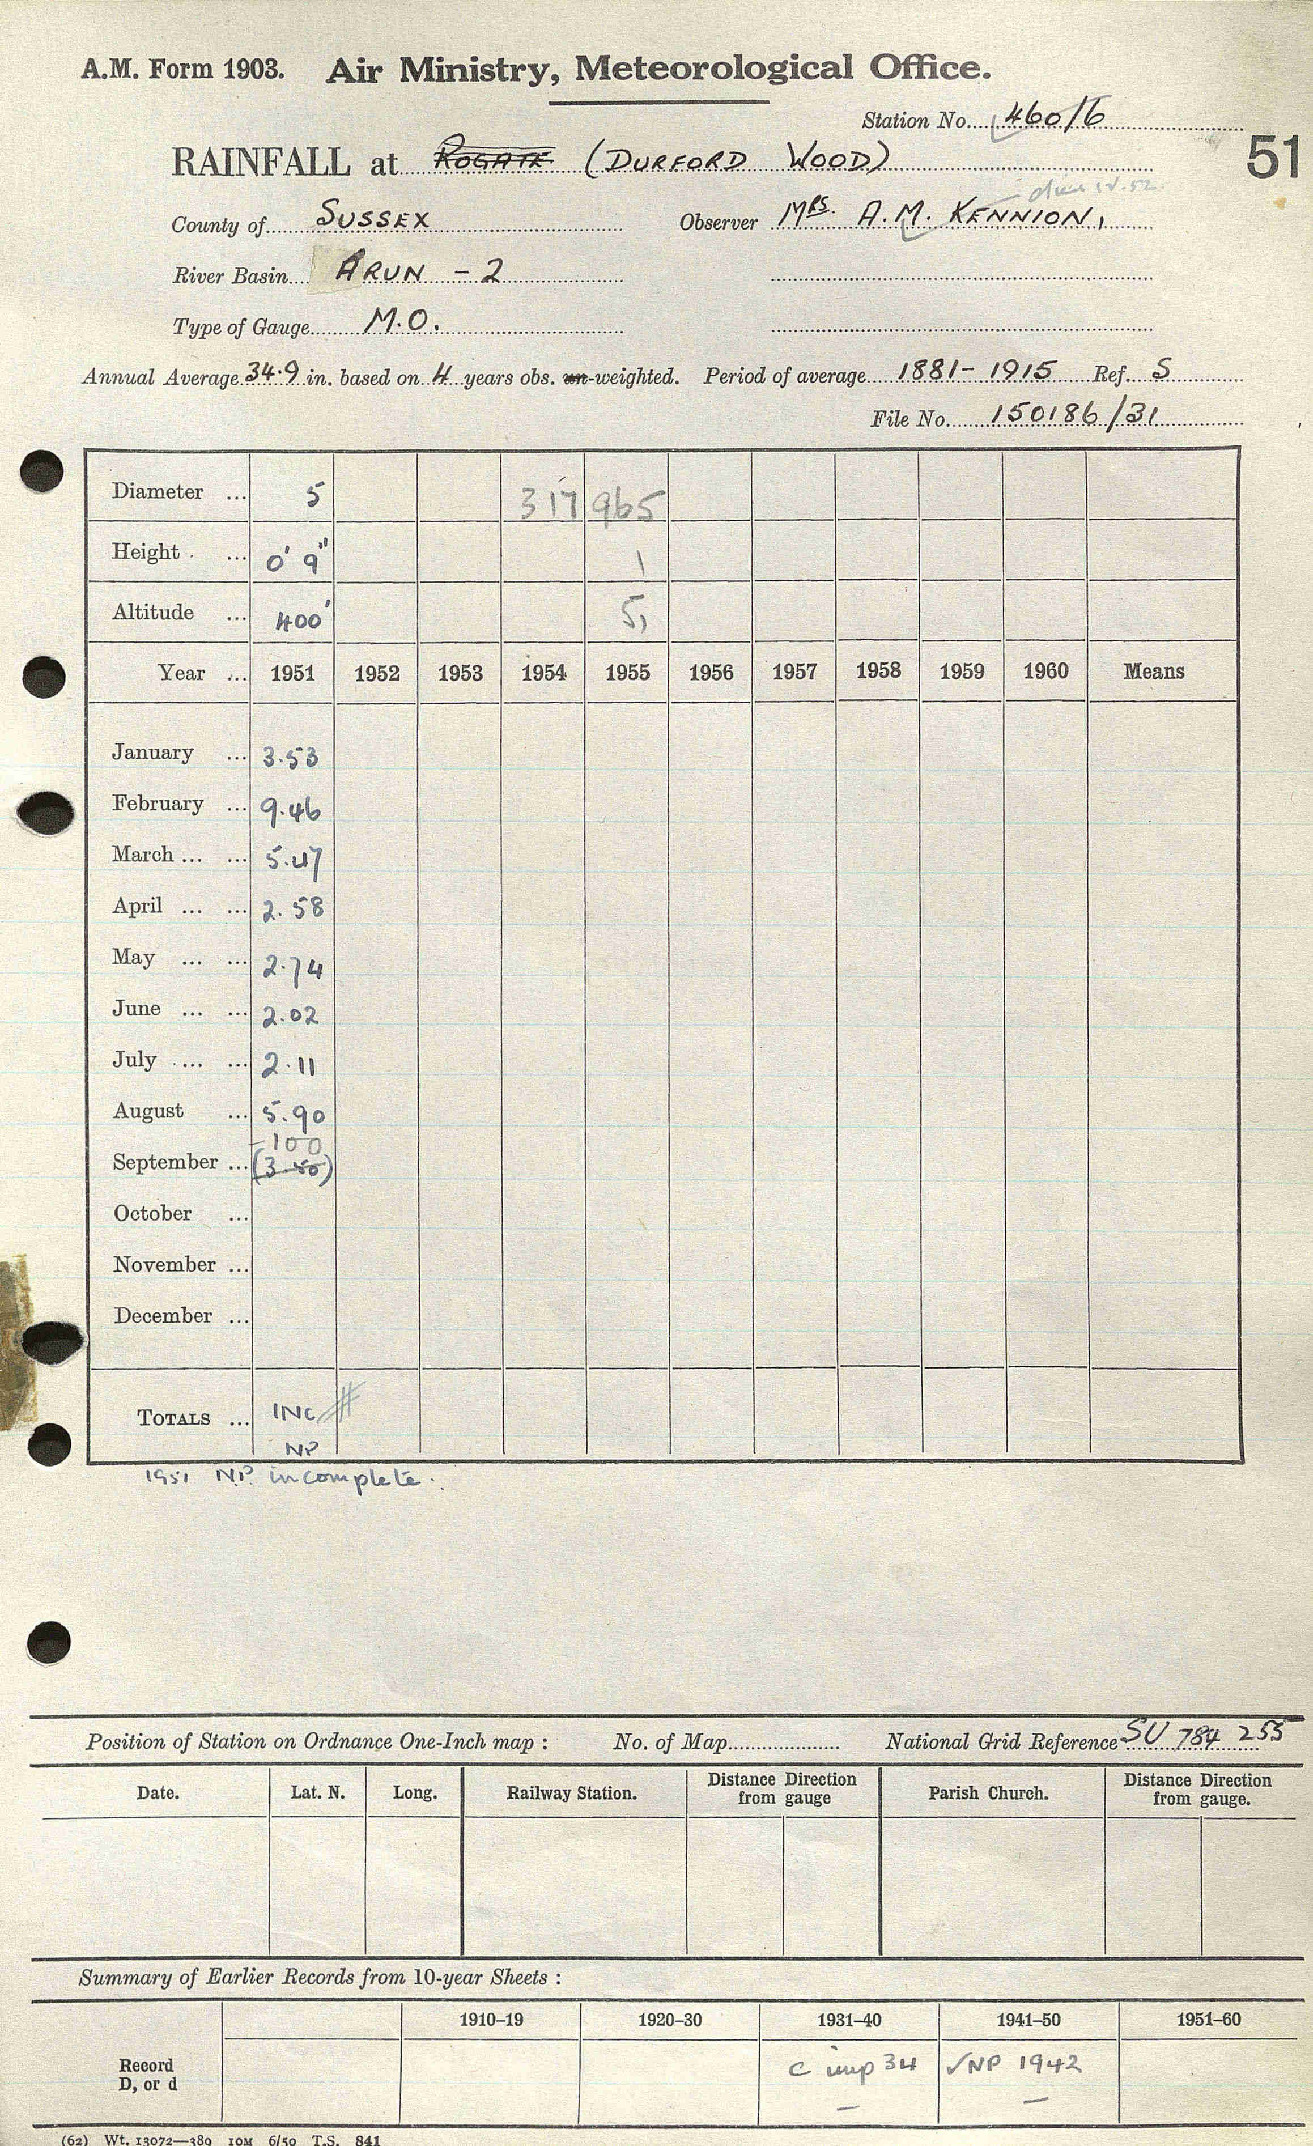 A.M. Form 1903. Air Ministry, Meteorological Office.
Station No. 460/6
51
RAINFALL at ROGATE (DURFORD WOOD)
County of SUSSEX Observer MRS. A.M. KENNION,
River Basin ARUN - 2
Type of Gauge M.O.
Annual Average 34.9 in. based on 4 years obs. un-weighted. Period of average 1881-1915 Ref. S
File No. 150186/31
Diameter ... 5 317 965
Height ... 0' 9" 1
Altitude ... 400' 5,
Year ... 1951 1952 1953 1954 1955 1956 1957 1958 1959 1960 Means
January ... 3.53
February ... 9.46
March ... ... 5.47
April ... ... 2.58
May ... ... 2.74
June ... ... 2.02
July ... ... 2.11
August ... 5.90
100
September ... (3.50)
October ...
November ...
December ...
TOTALS ... INC #
NP
1951 N.P. incomplete.
Position of Station on Ordnance One-Inch map : No. of Map National Grid Reference SU 784 255
Date. Lat. N. Long. Railway Station. Distance from gauge Direction Parish Church. Distance from gauge. Direction
Summary of Earlier Records from 10-year Sheets :
1910-19 1920-30 1931-40 1941-50 1951-60
Record D, or d c imp 34 √NP 1942
– –
(62) Wt. 13072—389 10M 6/50 T.S. 841